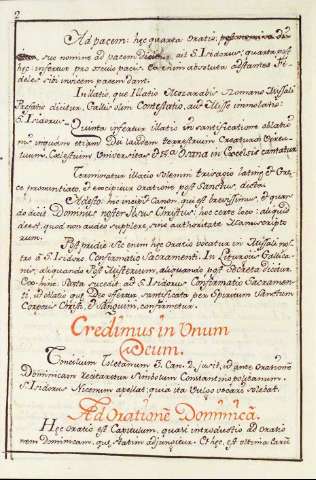 2
Ad pacem: hęc quarta oratio,
sue nomine ad pacem dicitur, ait S. Isidorus: quarta post
hęc infertur pro osculo pacis. Ea enim absoluta adstantes Fi-
deles sivi invicem pacem dant.
Inllatio, que Illatio Mozarabis Romano Missali
Pręfatio dicitur, Gallis olim Contestatio, aut Missę immolatio:
S. Isidorus - Quinta infertur illatio in santificatione oblatio-
nis inquam etiam Dei laudem terrestrium Creaturarum Virtu-
tumq. Cœlestium Universitas & Osanna in Excelsis cantatur
Terminatur illatio solemni trisagio latine, & Grę-
ce pronuntiato, & emcipitur oratione post Sanctus, dicta.
Adesto: hic incipit Canon, qui est brevissimus, & quan-
do dicit Dominus noster Jesus Christus: hoc certe loco: aliquid
deest, quod non audeo supplere, sine authoritate Manuscripto-
rum.
Post pridie Sic enim hęc oratio vocatur in Missali, nos-
tro â S. Isidoro Confirmatio Sacramenti. In Liturgiis Gallica-
nis, aliquando Post Mysterium, aliquando post Secreta dicitur.
Porro sucedit, ait S. Isidorus Confirmatio Sacramen-
ti, ut oblatio que Deo offertur, santificata per Spiritum Sanctum
Corporis Christi, & Sanguini, confirmetur.
Credimus in Unum
Deum.
Concilium Toletanum 3. Can. 2. jusit, ut ante orationẽ
Dominicam recitaretur Simbolum Constantinopolitanum.
S. Isidorus Nicenum apellat, quia ita vulgo vocari solebat.
Ad Orationẽ Dominicã.
Hęc oratio est Capitulum, quasi introductio ad oratio-
nem Dominicam, quę statim adjungitur. Et hęc, est ultima earũ